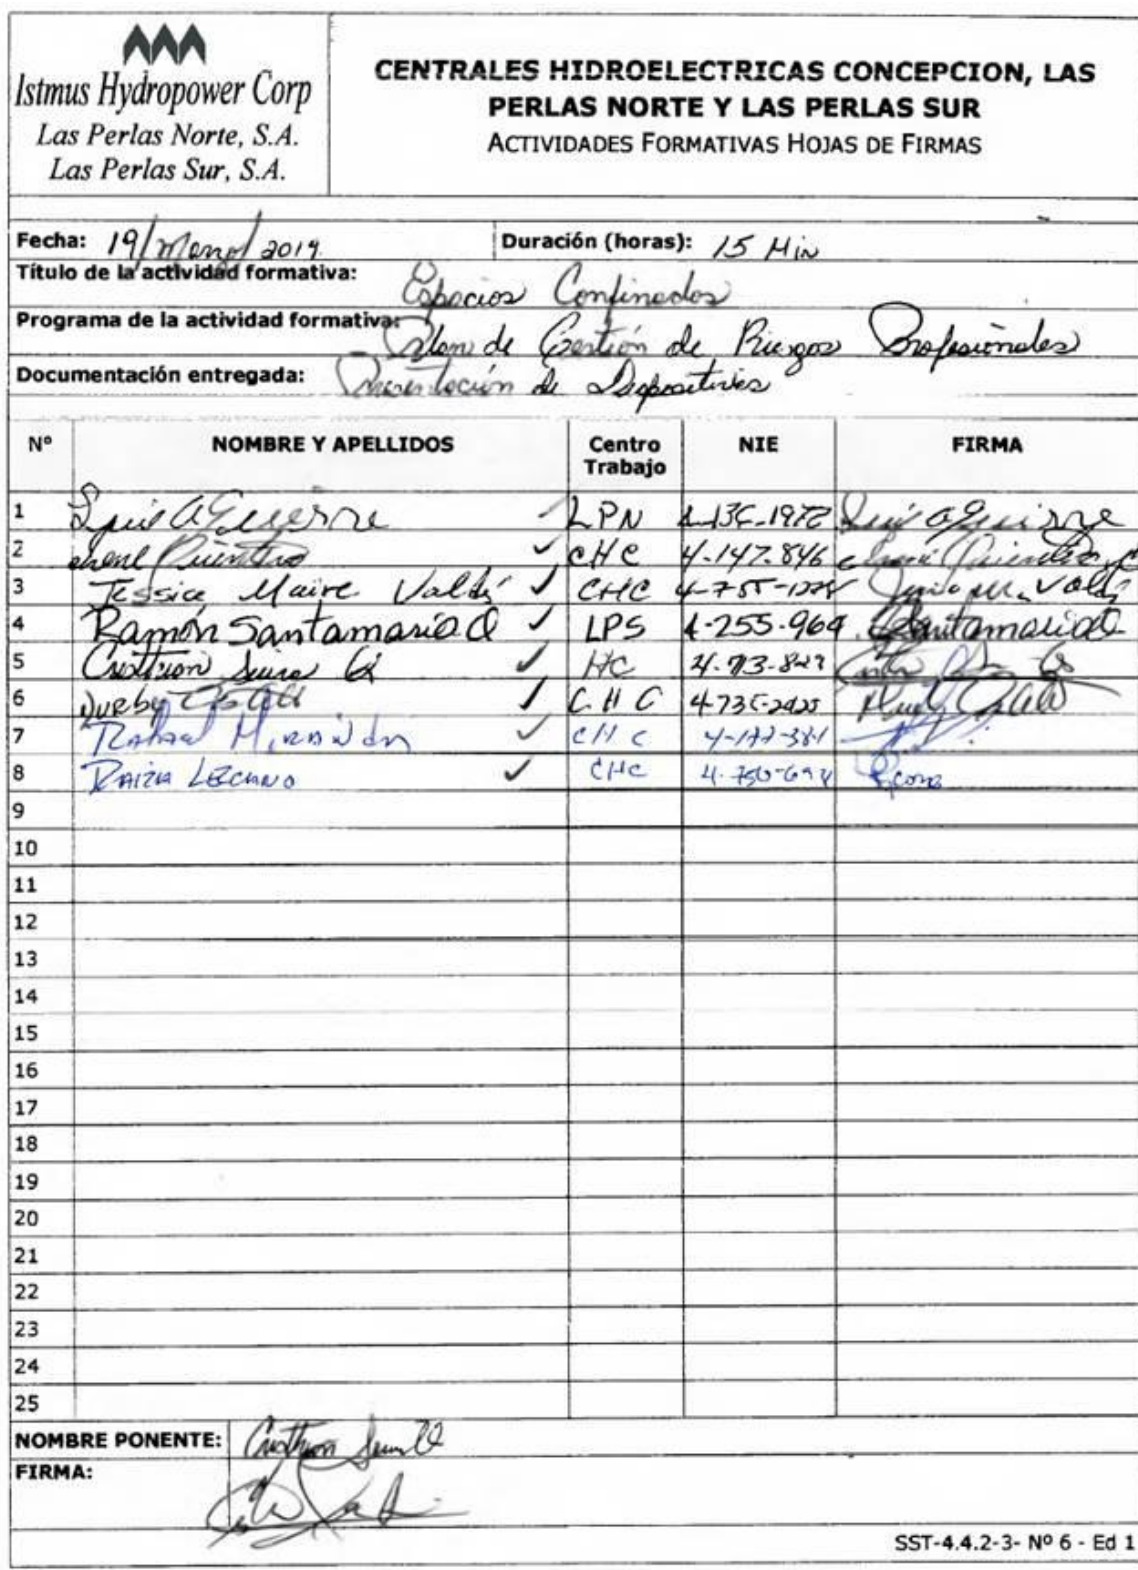 Istmus Hydropower Corp
Las Perlas Norte, S.A.
Las Perlas Sur, S.A.
CENTRALES HIDROELECTRICAS CONCEPCION, LAS
PERLAS NORTE Y LAS PERLAS SUR
ACTIVIDADES FORMATIVAS HOJAS DE FIRMAS
Fecha: 19/Marzo/2019
Duración (horas): 15 Min
Título de la actividad formativa: Espacios Confinados
Programa de la actividad formativa: Plan de Gestión de Riesgos Profesionales
Documentación entregada: Presentación de Diapositivas
Nº NOMBRE Y APELLIDOS Centro Trabajo NIE FIRMA
1 Luis Aguirre LPN 4-136-1972 Luis Aguirre
2 Quintero ✓ CHC 4-147-846 Quintero
3 Jessica Maire Valdés ✓ CHC 4-755- Valdés
4 Ramón Santamaria Q ✓ LPS 4-255-964 Santamaria Q
5 ✓ HC
6 ✓ CHC
7 Rafael Miranda ✓ CHC
8 Lezcano ✓ CHC
9
10
11
12
13
14
15
16
17
18
19
20
21
22
23
24
25
NOMBRE PONENTE:
FIRMA:
SST-4.4.2-3- Nº 6 - Ed 1